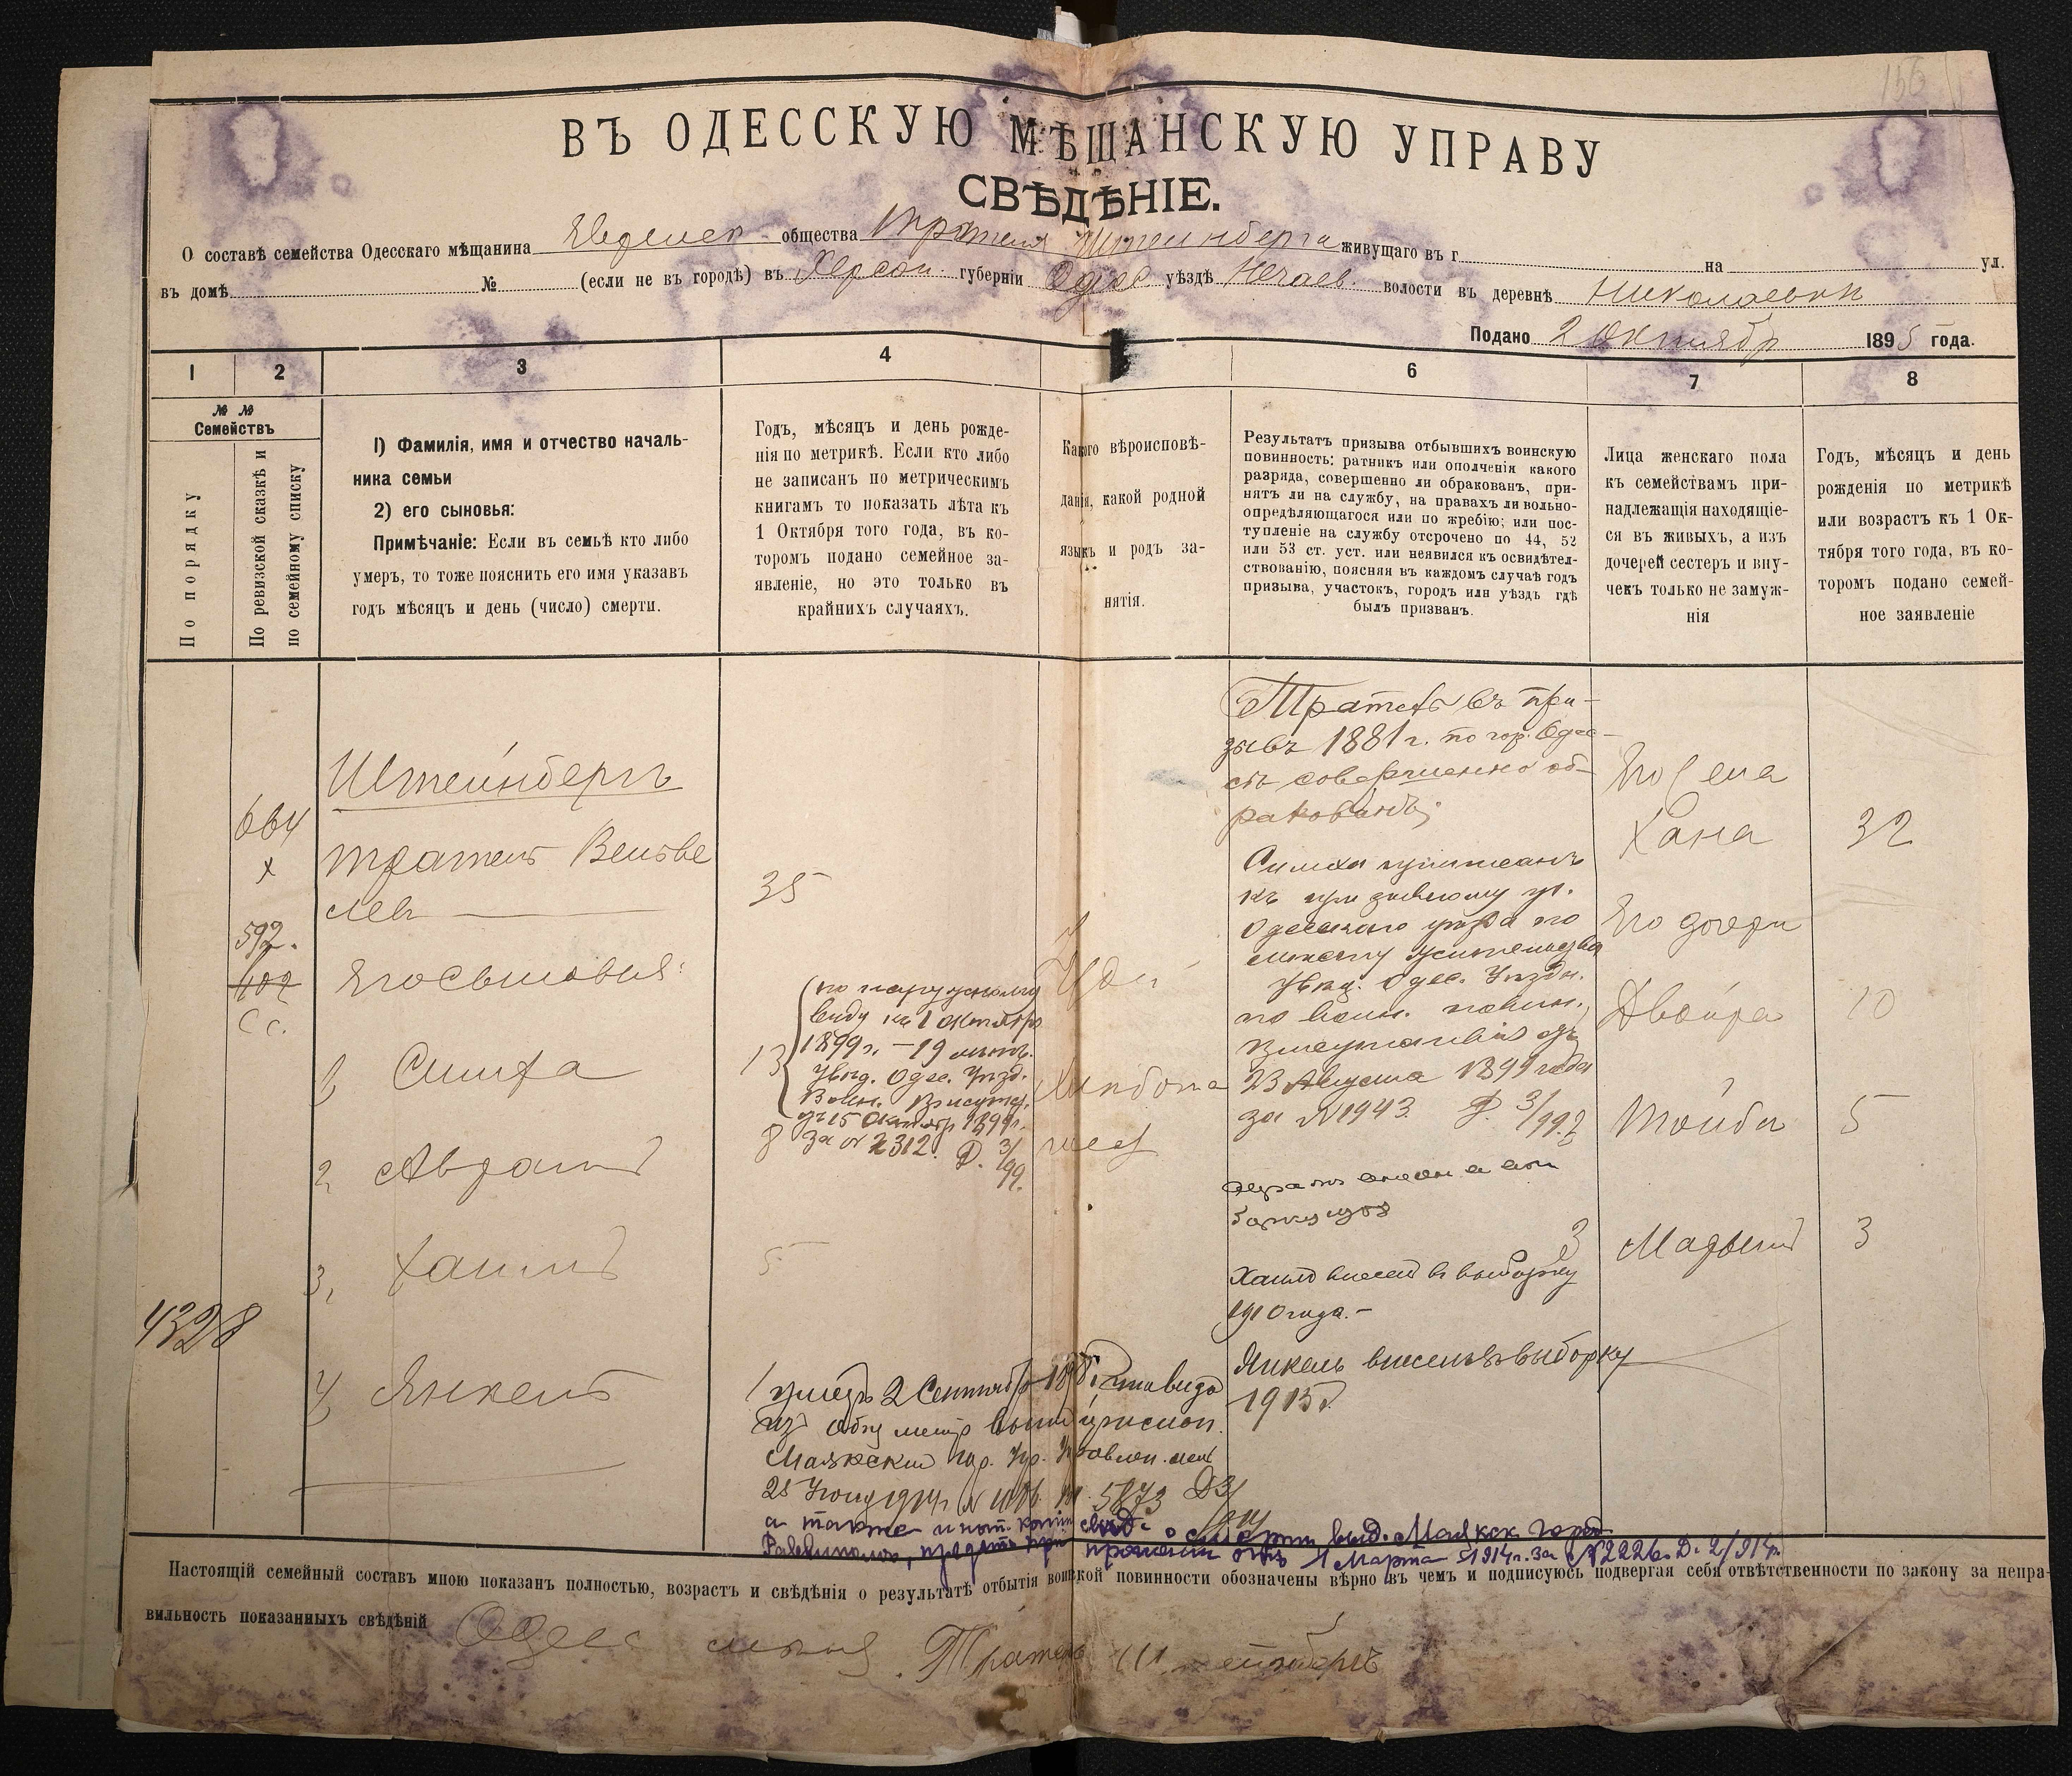 156
ВЪ ОДЕССКУЮ МѢЩАНСКУЮ УПРАВУ
СВѢДѢНІЕ.
О составѣ семейства Одесскаго мѣщанина общества Трателя Штейнберга живущаго въ г на ул.
въ домѣ № (если не въ городѣ) въ Херсон. губерніи Одес уѣздѣ Нечаев. волости въ деревнѣ Николаевки
Подано 2 Октября 1895 года.
1 2 3 4 6 7 8
№ № Семействъ
По порядку
По ревизской сказкѣ и по семейному списку
1) Фамилія, имя и отчество началь-
ника семьи
2) его сыновья:
Примѣчаніе: Если въ семьѣ кто либо
умеръ, то тоже пояснить его имя указавъ
годъ мѣсяцъ и день (число) смерти.
Годъ, мѣсяцъ и день рожде-
нія по метрикѣ. Если кто либо
не записанъ по метрическимъ
книгамъ то показать лѣта къ
1 Октября того года, въ ко-
торомъ подано семейное за-
явленіе, но это только въ
крайнихъ случаяхъ.
Какого вѣроисповѣ-
данія, какой родной
языкъ и родъ за-
нятія.
Результатъ призыва отбывшихъ воинскую
повинность: ратникъ или ополченія какого
разряда, совершенно ли обракованъ, при-
нятъ ли на службу, на правахъ ли вольно-
опредѣляющагося или по жребію; или пос-
тупленіе на службу отсрочено по 44, 52
или 53 ст. уст. или неявился къ освидѣтел-
ствованію, поясняя въ каждомъ случаѣ годъ
призыва, участокъ, городъ или уѣздъ гдѣ
былъ призванъ.
Лица женскаго пола
къ семействамъ при-
надлежащія находящіе-
ся въ живыхъ, а изъ
дочерей сестеръ и вну-
чекъ только не замуж-
нія
Годъ, мѣсяцъ и день
рожденія по метрикѣ
или возрастъ къ 1 Ок-
тября того года, въ ко-
торомъ подано семей-
ное заявленіе
664
х
592.
402
Сс.
4328
Штейнбергъ
Тратель Вельве
левъ
35
Его Сыновья:
1 Симха
13
по наружному
виду къ 1 октября
1899 г. – 19 лѣтъ.
Увѣд. Одес. Уѣзд.
Воин. Присутс.
отъ 15 Октября 1899 г.
за № 2312. Д. 3/99.
2, Аврамъ
8
3, Хаимъ
5
4, Янкель
1
умеръ 2 Сентября
Маякскій
а также
о смерти выд. Маякск. Город.
Раввиномъ, предст. при прошеніи отъ 1 Марта 1914 г. за № 2226. Д. 2/914 г.
Іуд.
Хлѣбопа
шец
Тратель въ при-
зывъ 1881 г. по гор. Одес-
сѣ совершенно об-
ракованъ;
Симха приписанъ
къ призывному уч.
Одесскаго уѣзда по
мѣсту жительства
Увѣд. Одес. Уѣздн.
по воин. повин.
Присутствія отъ
23 Августа 1899 года
за № 1943. Д. 3/99.
Хаимъ внесенъ въ выборку
1910 года. –
Янкель внесенъ въ выборку
1915 г.
Его Жена
Хана
32
Его дочери
Двойра
10
Тойба
5
3 Мадьемъ
3
Настоящій семейный составъ мною показанъ полностью, возрастъ и свѣдѣнія о результатѣ отбытія воинской повинности обозначены вѣрно въ чемъ и подписуюсь подвергая себя отвѣтственности по закону за непра-
вильность показанныхъ свѣдѣній Одесс мѣщ. Тратель Штейнбергъ